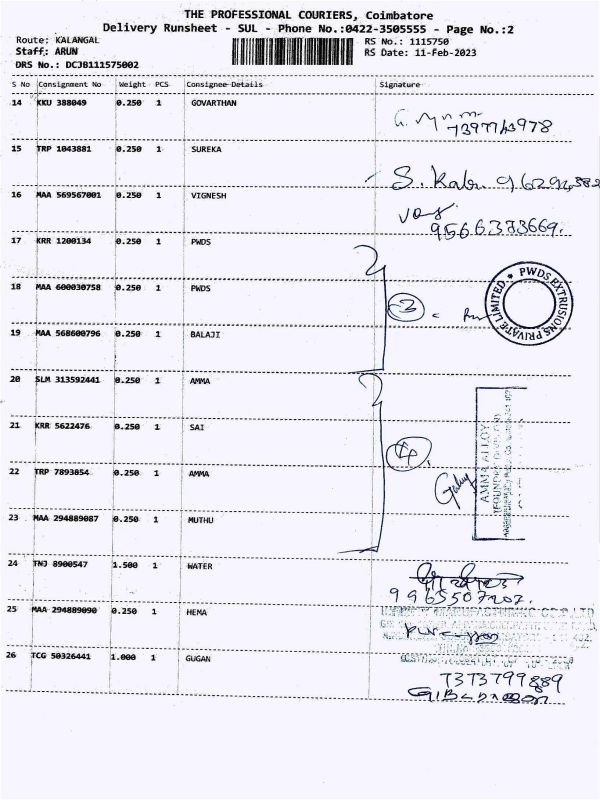 THE PROFESSIONAL COURIERS, Coimbatore
Delivery Runsheet - SUL - Phone No.:0422-3505555 - Page No.:2
Route: KALANGAL
Staff: ARUN
DRS No.: DCJB111575002
RS No.: 1115750
RS Date: 11-Feb-2023
S No Consignment No Weight PCS Consignee Details Signature
14 KKU 388049 0.250 1 GOVARTHAN
15 TRP 1043881 0.250 1 SUREKA
S. 
16 MAA 569567001 0.250 1 VIGNESH
9566373669.
17 KRR 1200134 0.250 1 PWDS
18 MAA 600030758 0.250 1 PWDS
3
PWDS EXTRUSIONS PRIVATE LIMITED.
19 MAA 568600796 0.250 1 BALAJI
20 SLM 313592441 0.250 1 AMMA
21 KRR 5622476 0.250 1 SAI
4
AMMA ALLOY
22 TRP 7893854 0.250 1 AMMA
23 MAA 294889087 0.250 1 MUTHU
24 TNJ 8900547 1.500 1 WATER
25 MAA 294889090 0.250 1 HEMA
26 TCG 50326441 1.000 1 GUGAN
7373799889